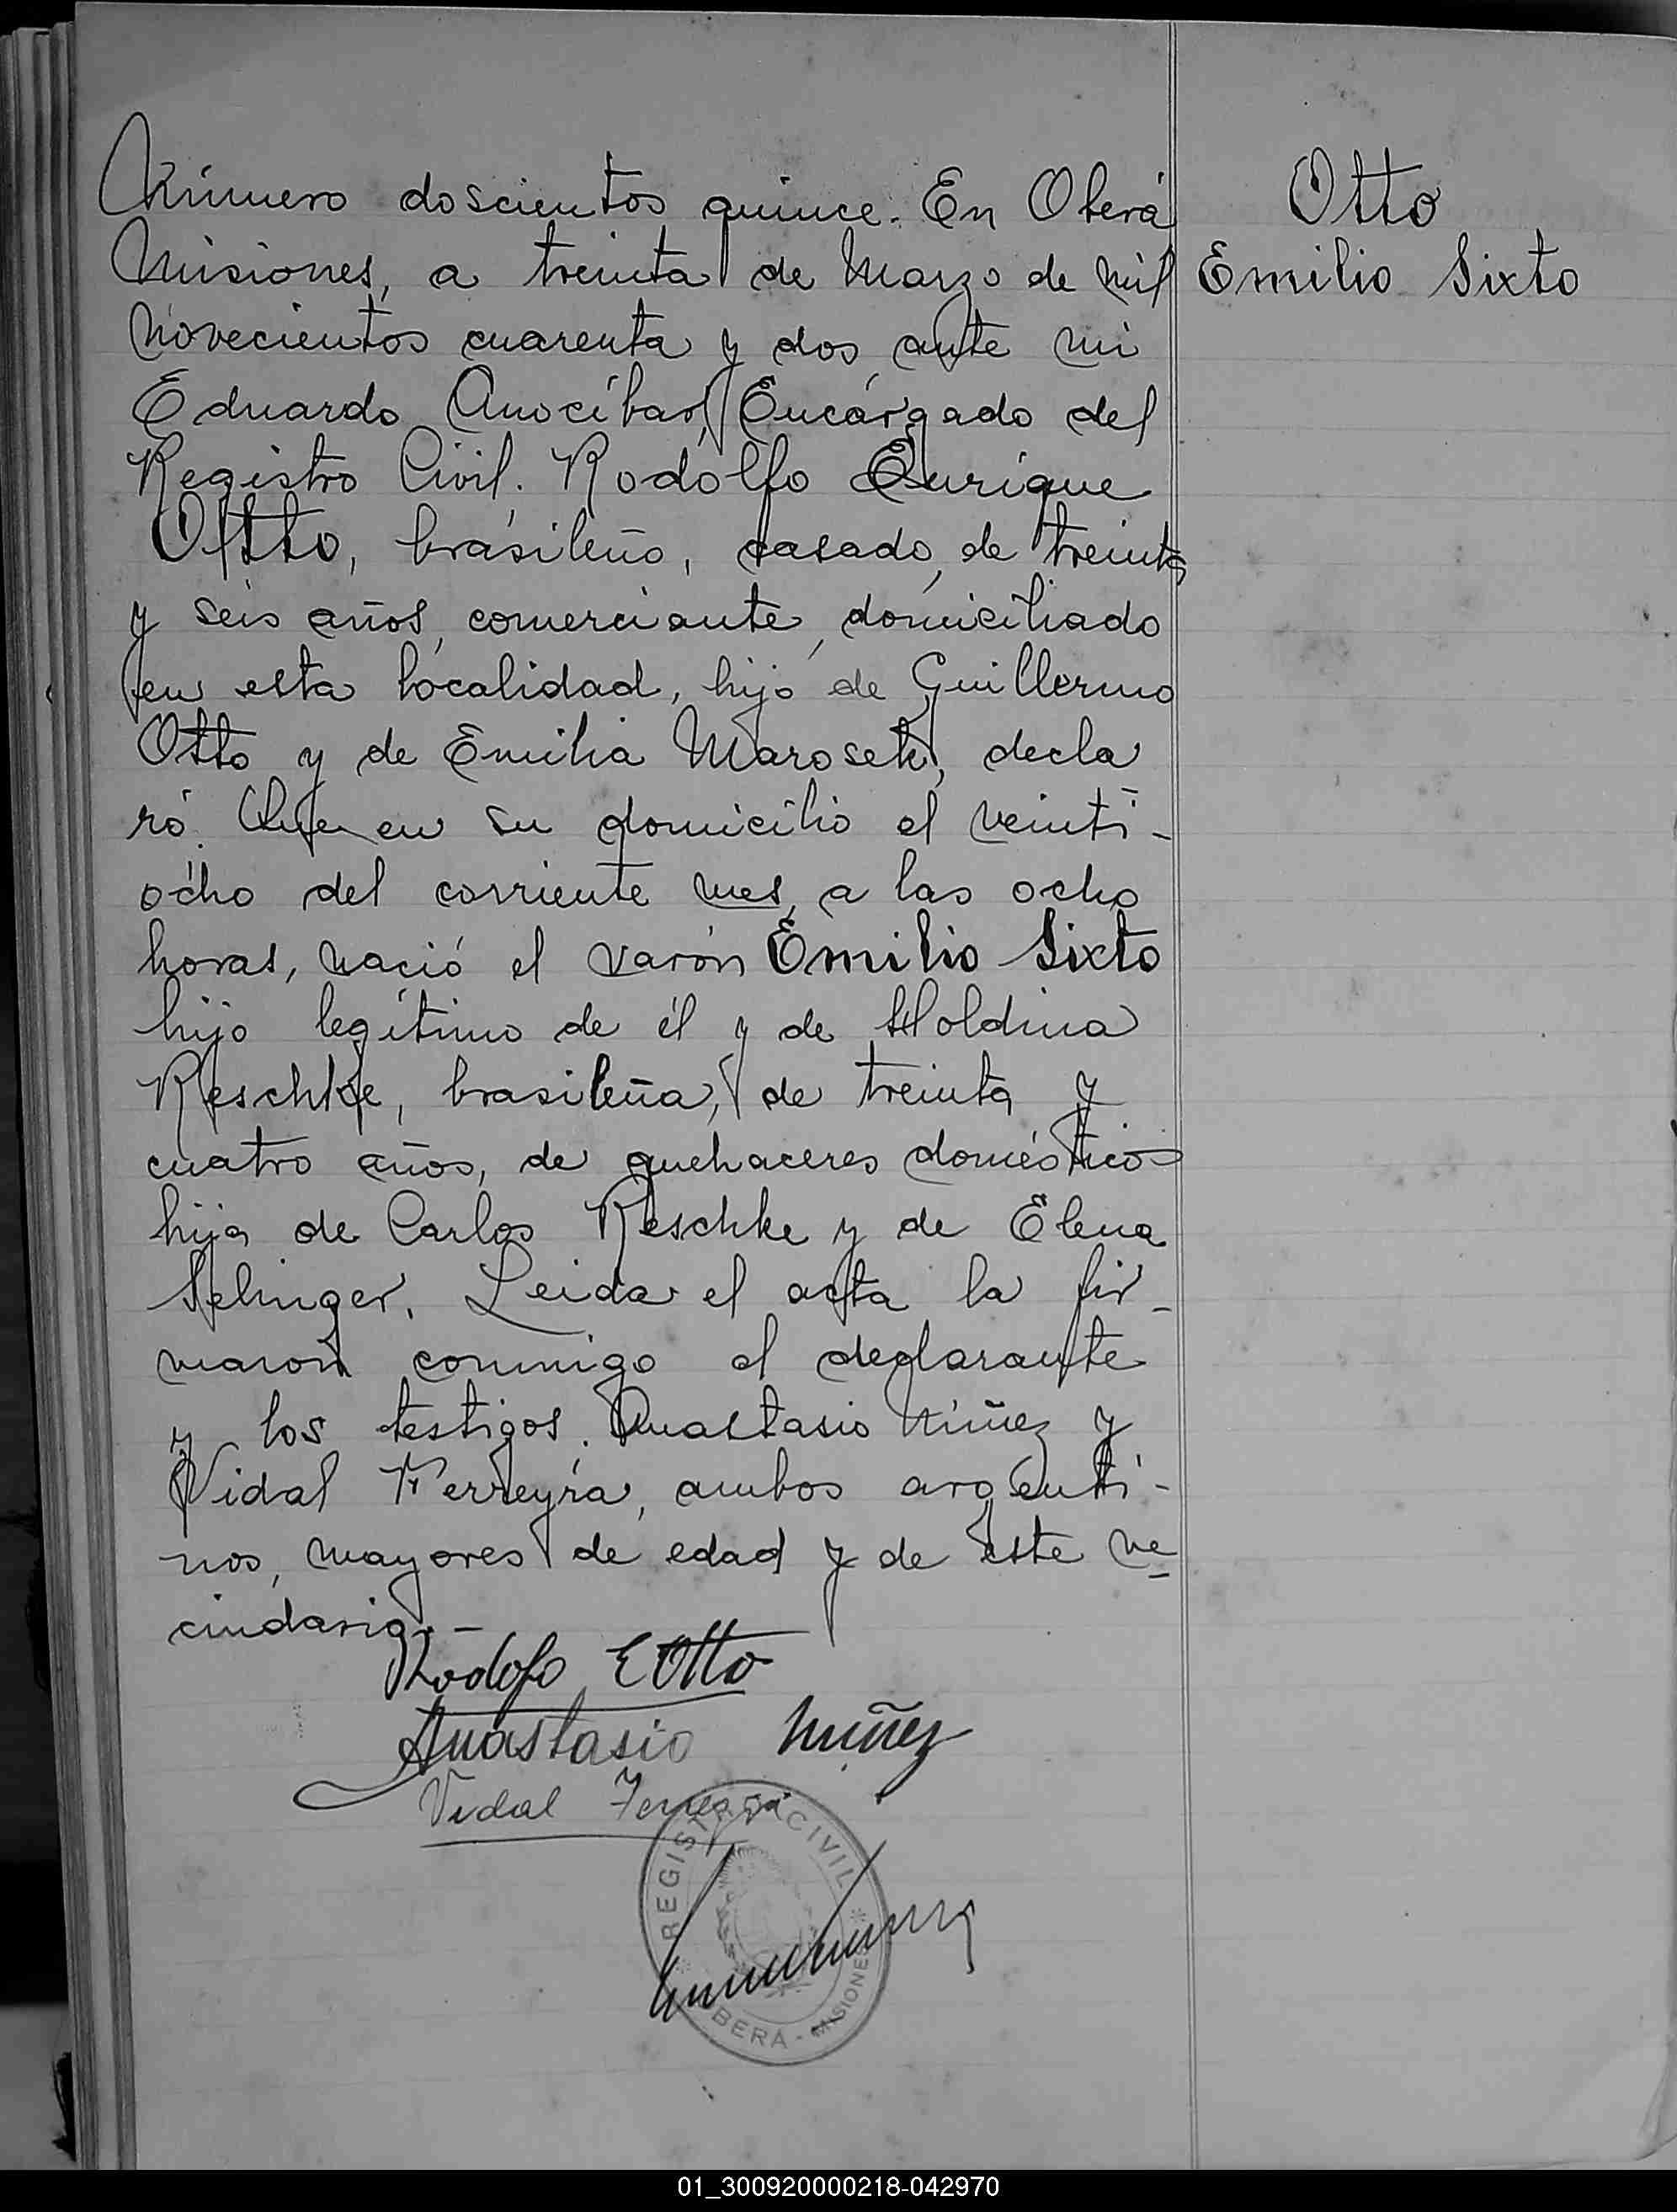 Número doscientos quince. En Oberá
Misiones, a treinta de Marzo de mil
novecientos cuarenta y dos, ante mi
Eduardo Anocíbar, Encargado del
Registro Civil. Rodolfo Enrique
Otto, brasileño, casado, de treinta
y seis años, comerciante, domiciliado
en esta localidad, hijo de Guillermo
Otto y de Emilia Marosek, decla
ró. Que en su domicilio el veinti-
ocho del corriente mes, a las ocho
horas, nació el varón Emilio Sixto
hijo legítimo de él y de Holdina
Reschke, brasileña, de treinta y
cuatro años, de quehaceres domésticos
hija de Carlos Reschke y de Elena
Selinger. Leida el acta la fir-
maron conmigo el declarante
y los testigos. Anastasio Núñez y
Vidal Ferreyra, ambos argenti-
nos, mayores de edad y de este ve
cindario.-
Rodolfo E Otto
Anastasio Nuñez
Vidal Ferreyra
REGISTRO CIVIL
OBERÁ - MISIONES
Otto
Emilio Sixto
01_300920000218-042970